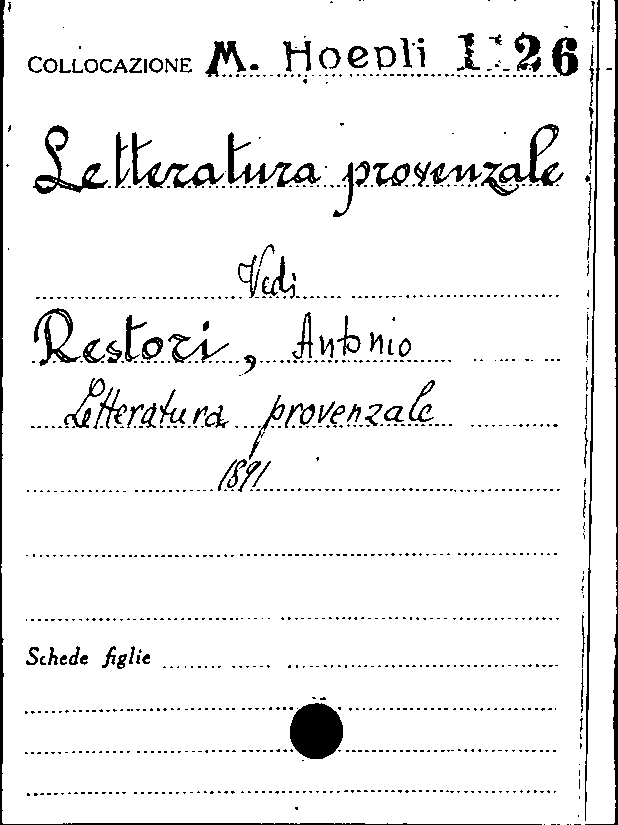 COLLOCAZIONE M. Hoepli 26
Letteratura provenzale
Vedi
Restori, Antonio
Letteratura provenzale
1891
Schede figlie